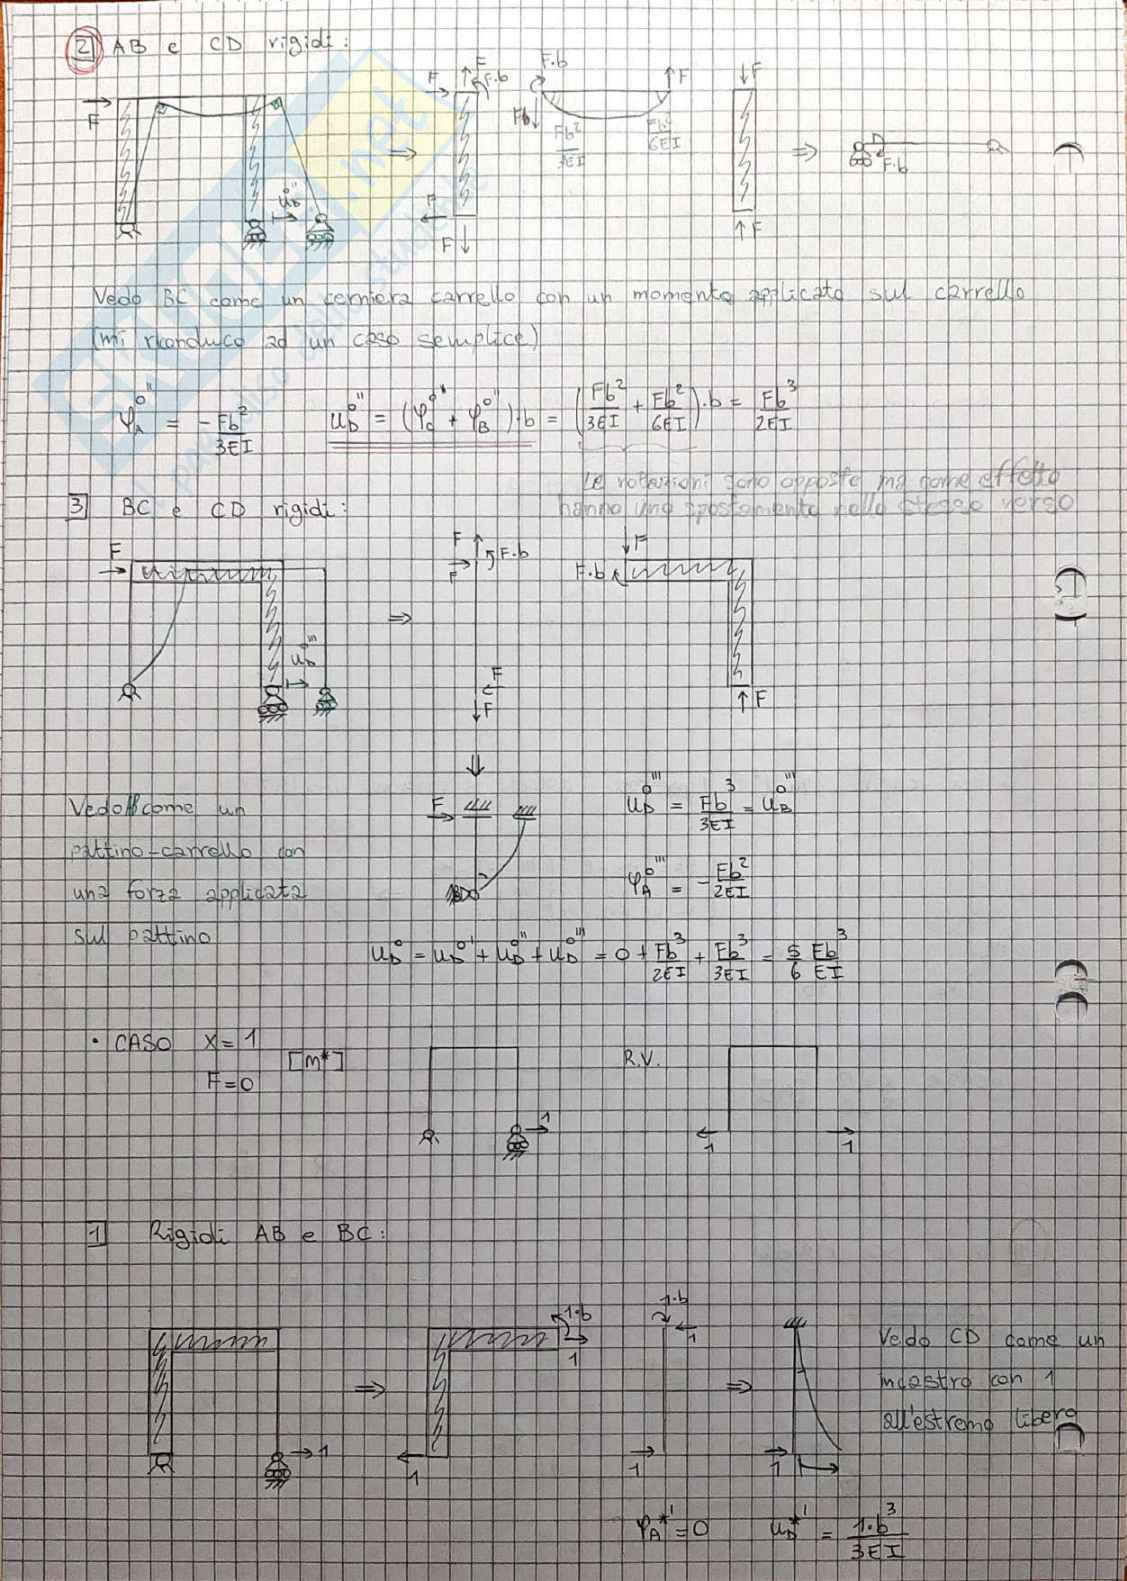 2 AB e CD rigidi:
F
F
F
F·b
F
F
F·b
Fb
F
Fb²/3EI
Fb²/6EI
F
F
⇒
⇒
D
F·b
u_D^o''
Vedo BC come un cerniera carrello con un momento applicato sul carrello
(mi riconduco ad un caso semplice)
φ_A^o'' = -Fb²/3EI
u_D^o'' = (φ_C^o'' + φ_B^o'')·b = (Fb²/3EI + Fb²/6EI)·b = Fb³/2EI
Le rotazioni sono opposte ma come effetto
hanno uno spostamento nello stesso verso
3 BC e CD rigidi:
F
u_D^o'''
⇒
F
F·b
F
F
F
F
F·b
F
Vedo come un
pattino-carrello con
una forza applicata
sul pattino
F
u_D^o''' = Fb³/3EI = u_B^o'''
φ_A^o''' = -Fb²/2EI
u_D^o = u_D^o' + u_D^o'' + u_D^o''' = 0 + Fb³/2EI + Fb³/3EI = 5/6 Fb³/EI
• CASO X = 1
F = 0
[m*]
1
R.V.
1
1
1 Rigidi AB e BC:
1
⇒
1·b
1
1
1·b
1
1
⇒
1
Vedo CD come un
incastro con 1
all'estremo libero
φ_A*' = 0
u_D*' = 1·b³/3EI